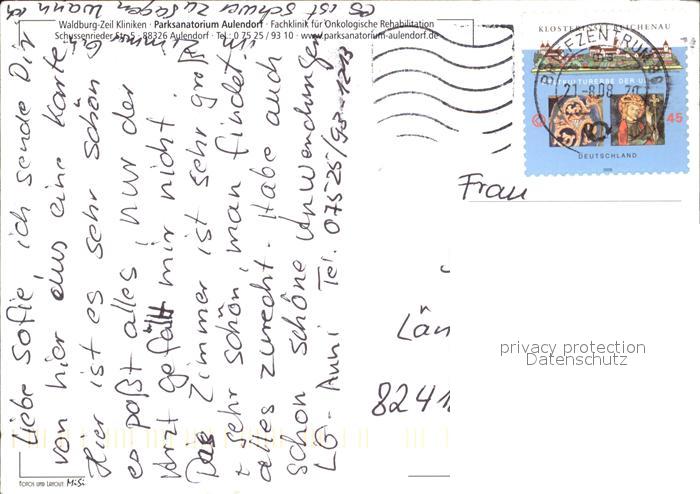 Waldburg-Zeil Kliniken · Parksanatorium Aulendorf · Fachklinik für Onkologische Rehabilitation
Schussenrieder Str. 5 · 88326 Aulendorf · Tel.: 0 75 25 / 93 10 · www.parksanatorium-aulendorf.de
Es ist schwer zu sagen wann ich
Liebe Sofie, ich sende Dir
von hier aus eine Karte
Hier ist es sehr schön
es paßt alles, nur der
Arzt gefällt mir nicht.
Das Zimmer ist sehr groß
+ sehr schön, man findet
alles zurecht. Habe auch
schon schöne Anwendungen
LG. Anni Tel. 07525/93-1213
KLOSTERINSEL REICHENAU
BRIEFZENTRUM
21.-8.08
KULTURERBE DER U
45
DEUTSCHLAND
2008
Frau
Län
8241
privacy protection
Datenschutz
FOTOS UND LAYOUT: MiSi